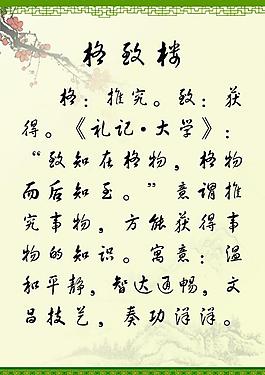 格致楼
格：推究。致：获
得。《礼记·大学》：
“致知在格物，格物
而后知至。”意谓推
究事物，方能获得事
物的知识。寓意：温
和平静，智达通畅，文
昌技艺，奏功洋洋。